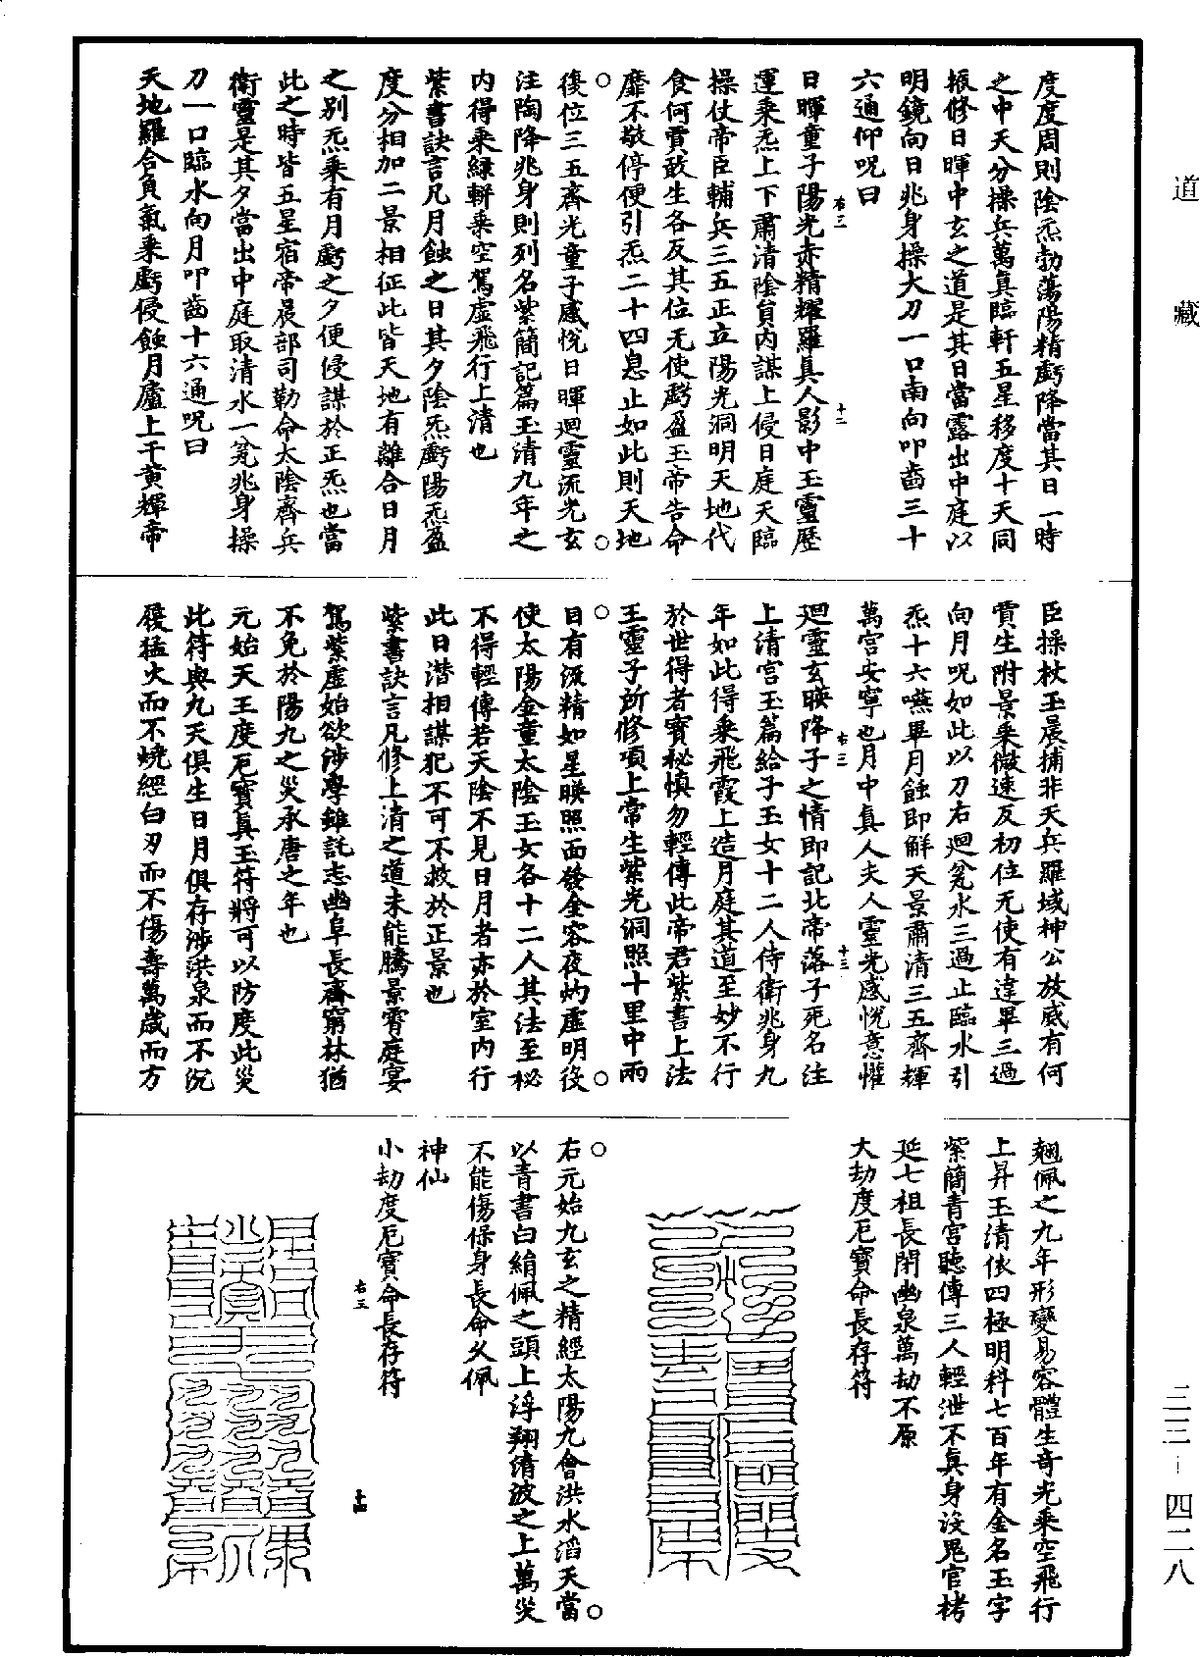 道藏
度度周則陰炁勃蕩陽精虧降當其日一時
之中天分操兵萬真臨軒五星移度十天同
振修日暉中玄之道是其日當露出中庭以
明鏡向日兆身操大刀一口南向叩齒三十
六通仰呪曰
右三
十二
日暉童子陽光赤精耀羅真人影中玉靈歷
運乘炁上下肅清陰貟內謀上侵日庭天臨
操仗帝臣輔兵三五正立陽光洞明天地代
食何賈敢生各反其位无使虧盈玉帝告命
靡不敬停便引炁二十四息止如此則天地
復位三五齊光童子感悅日暉迴靈流光玄
注陶降兆身則列名紫簡記篇玉清九年之
內得乘綠軿乘空駕虛飛行上清也
紫書訣言凡月蝕之日其夕陰炁虧陽炁盈
度分相加二景相征此皆天地有離合日月
之別炁乘有月虧之夕便侵謀於正炁也當
此之時皆五星宿帝晨部司勒命太陰齊兵
衛靈是其夕當出中庭取清水一瓮兆身操
刀一口臨水向月叩齒十六通呪曰
天地羅合負氣乘虧侵蝕月廬上干黃輝帝
臣操杖玉晨捕非天兵羅域神公放威有何
賈生附景乘微速反初位无使有違畢三過
向月呪如此以刀右迴瓮水三過止臨水引
炁十六嚥畢月蝕即解天景肅清三五齊輝
萬宮安寧也月中真人夫人靈光感悅意懽
右三
十三
迴靈玄暎降子之情即記北帝落子死名注
上清宮玉篇給子玉女十二人侍衛兆身九
年如此得乘飛霞上造月庭其道至妙不行
於世得者寶秘慎勿輕傳此帝君紫書上法
王靈子所修項上常生紫光洞照十里中兩
目有流精如星暎照面發金容夜灼虛明後
使太陽金童太陰玉女各十二人其法至秘
不得輕傳若天陰不見日月者亦於室內行
此日潛相謀犯不可不救於正景也
紫書訣言凡修上清之道未能騰景霄庭宴
駕紫虛始欲涉學雖託志幽阜長齋窮林猶
不免於陽九之災承唐之年也
元始天王度厄寶真玉符將可以防度此災
此符與九天俱生日月俱存涉洪泉而不沉
履猛火而不燒經白刃而不傷壽萬歲而方
翹佩之九年形變易容體生奇光乘空飛行
上昇玉清依四極明科七百年有金名玉字
紫簡青宮聽傳三人輕泄不真身沒鬼官栲
延七祖長閉幽泉萬劫不原
大劫度厄寶命長存符
右元始九玄之精經太陽九會洪水滔天當
以青書白絹佩之頭上浮翔清波之上萬災
不能傷保身長命久佩
神仙
小劫度厄寶命長存符
右三
十四
三三－四二八